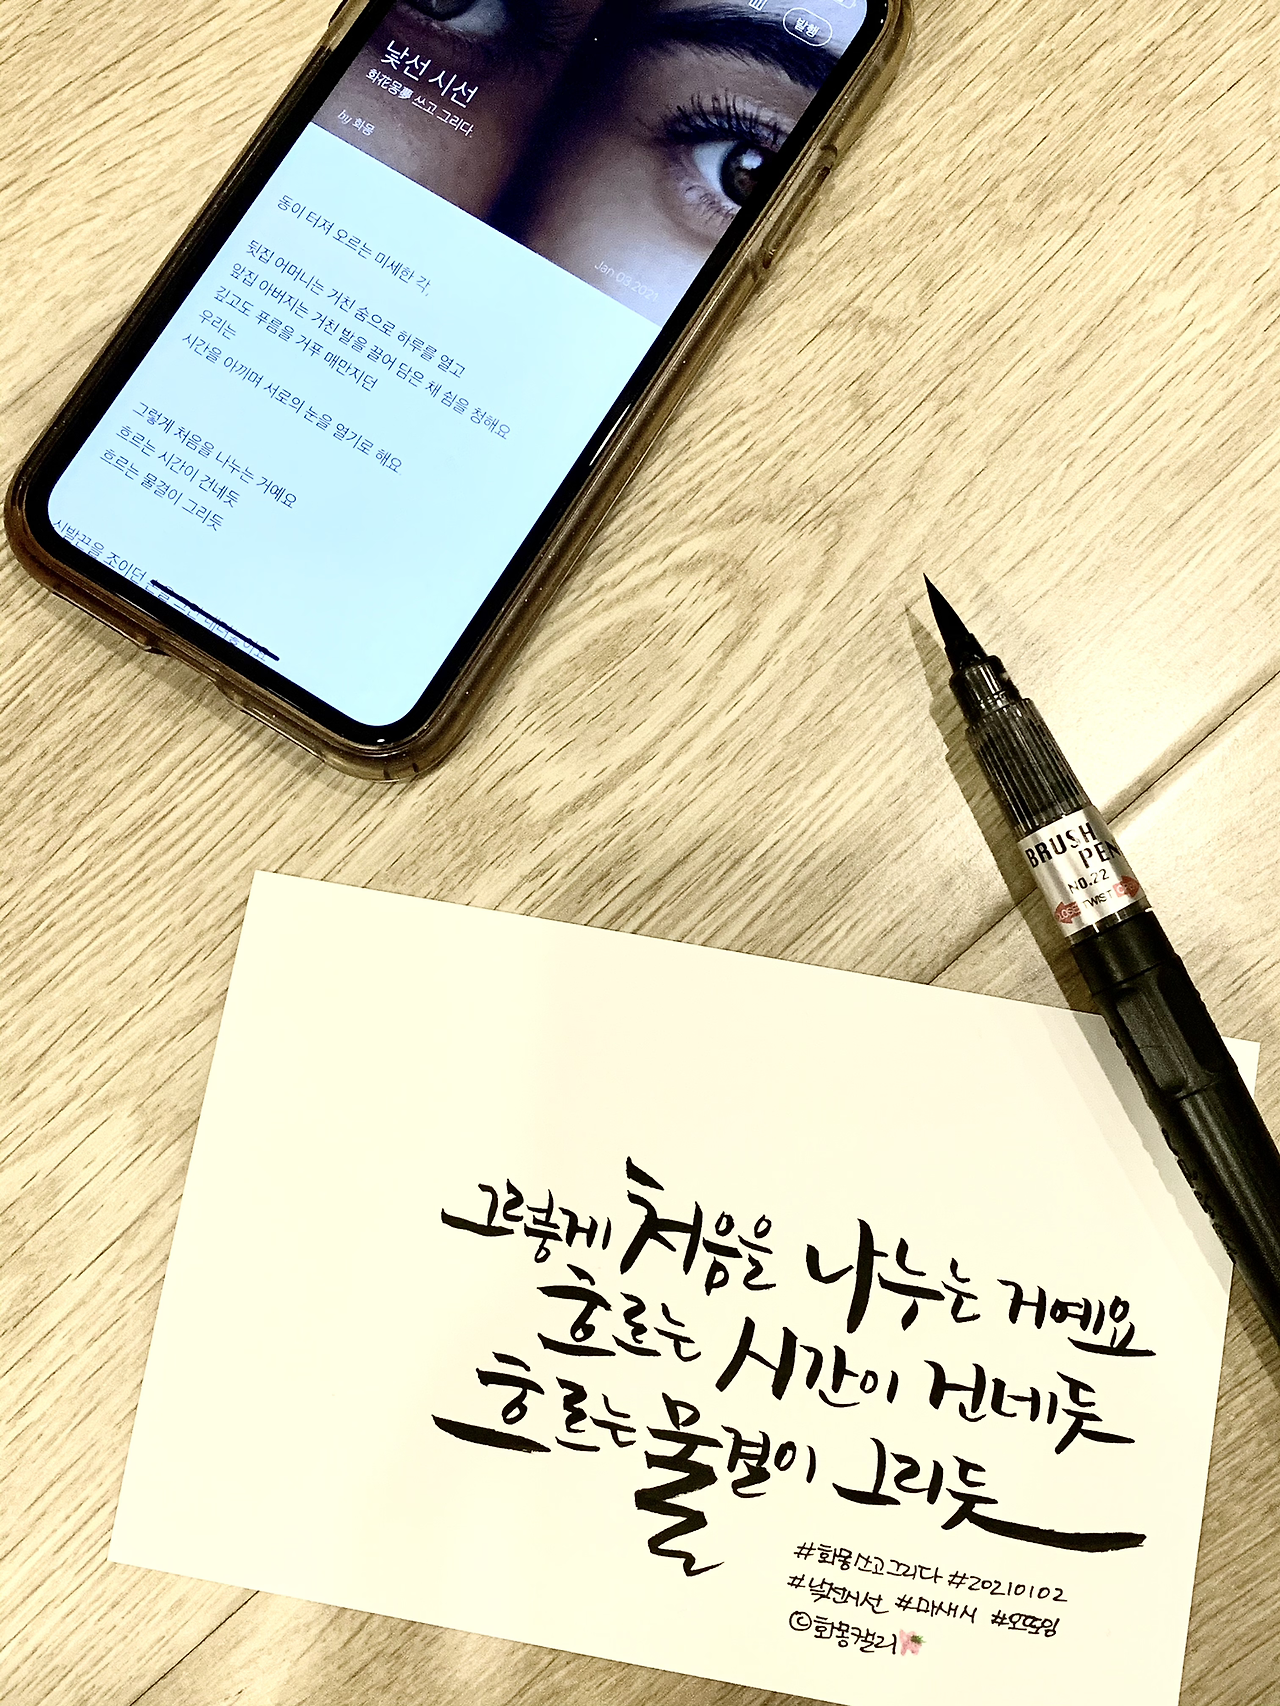 발행
낯선 시선
화花몽夢 쓰고 그리다.
by 화몽
Jan 03.2021
동이 터져 오르는 미세한 각,
뒷집 어머니는 거친 숨으로 하루를 열고
앞집 아버지는 거친 발을 끌어 담은 채 쉼을 청해요
깊고도 푸름을 거푸 매만지던
우리는
시간을 아끼며 서로의 눈을 열기로 해요
그렇게 처음을 나누는 거예요
흐르는 시간이 건네듯
흐르는 물결이 그리듯
조이던
BRUSH
PEN
NO.22
TWIST
그렇게 처음을 나누는 거예요
흐르는 시간이 건네듯
흐르는 물결이 그리듯
#화몽쓰고그리다 #20210102
#낯선시선 #매새시 #오뜨임
©화몽캘리